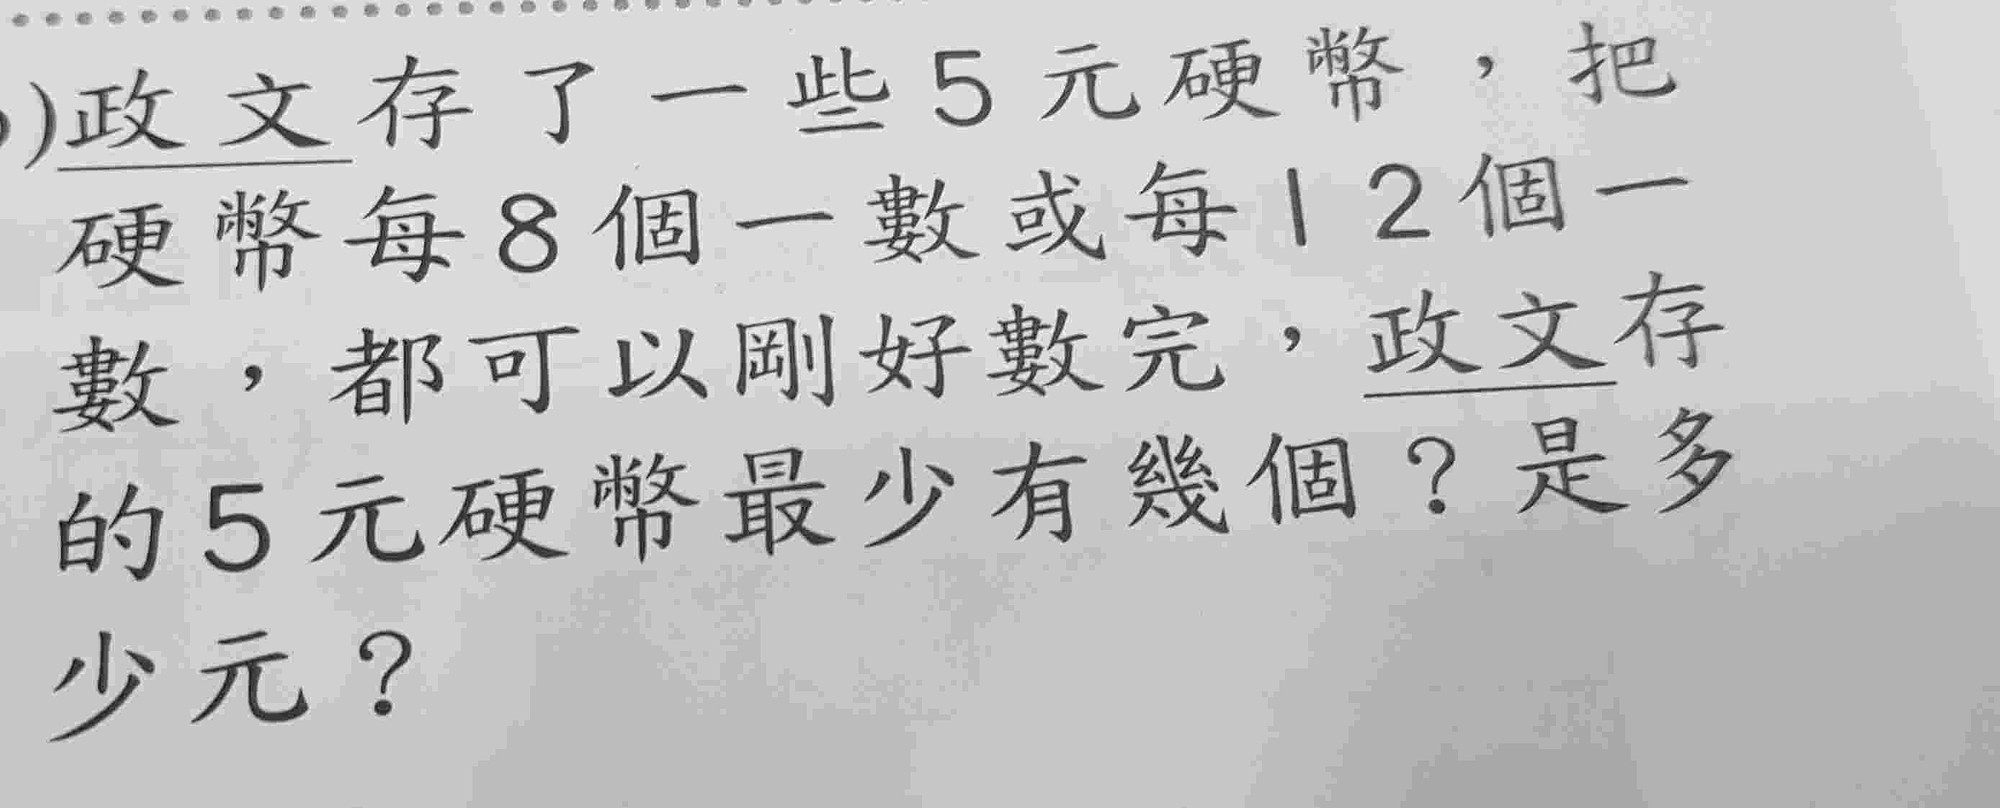 )政文存了一些5元硬幣，把
硬幣每8個一數或每12個一
數，都可以剛好數完，政文存
的5元硬幣最少有幾個？是多
少元？